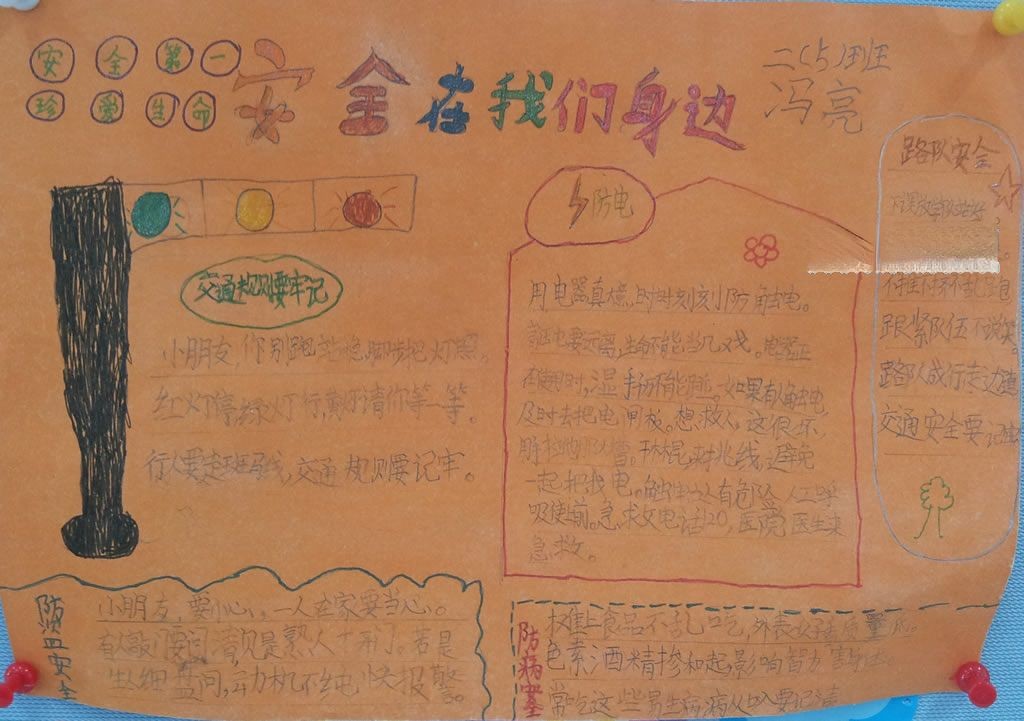 安全第一
珍爱生命
安全在我们身边
二(5)班
冯亮
交通规则要牢记
小朋友,你别跑,站稳脚步把灯照。
红灯停,绿灯行,黄灯请你等一等。
行人要走班马线,交通规则要记牢。
防电
用电器真械,时时刻刻防触电。
电要远离,生命不能当儿戏。
在使用时,湿手切不能。如果有人触电
及时去把电闸板。想救人,这很坏,
木棍来挑线,避免
一起把我电。触电之人有危险,人工呼
吸使前。急求女电话120,医院医生来
急救。
路队安全
不推不挤不乱跑
跟紧队伍不说笑。
路队成行走边道
交通安全要记牢
防盗安全
小朋友,要小心,一人在家要当心。
有人敲门要问清,是熟人才开门。若是
生人细盘问,动机不纯快报警。
防病安全
摊上食品不乱吃,外表好看质量低。
色素酒精掺和起,影响智力害身体。
常吃这些易生病,病从口入要记清